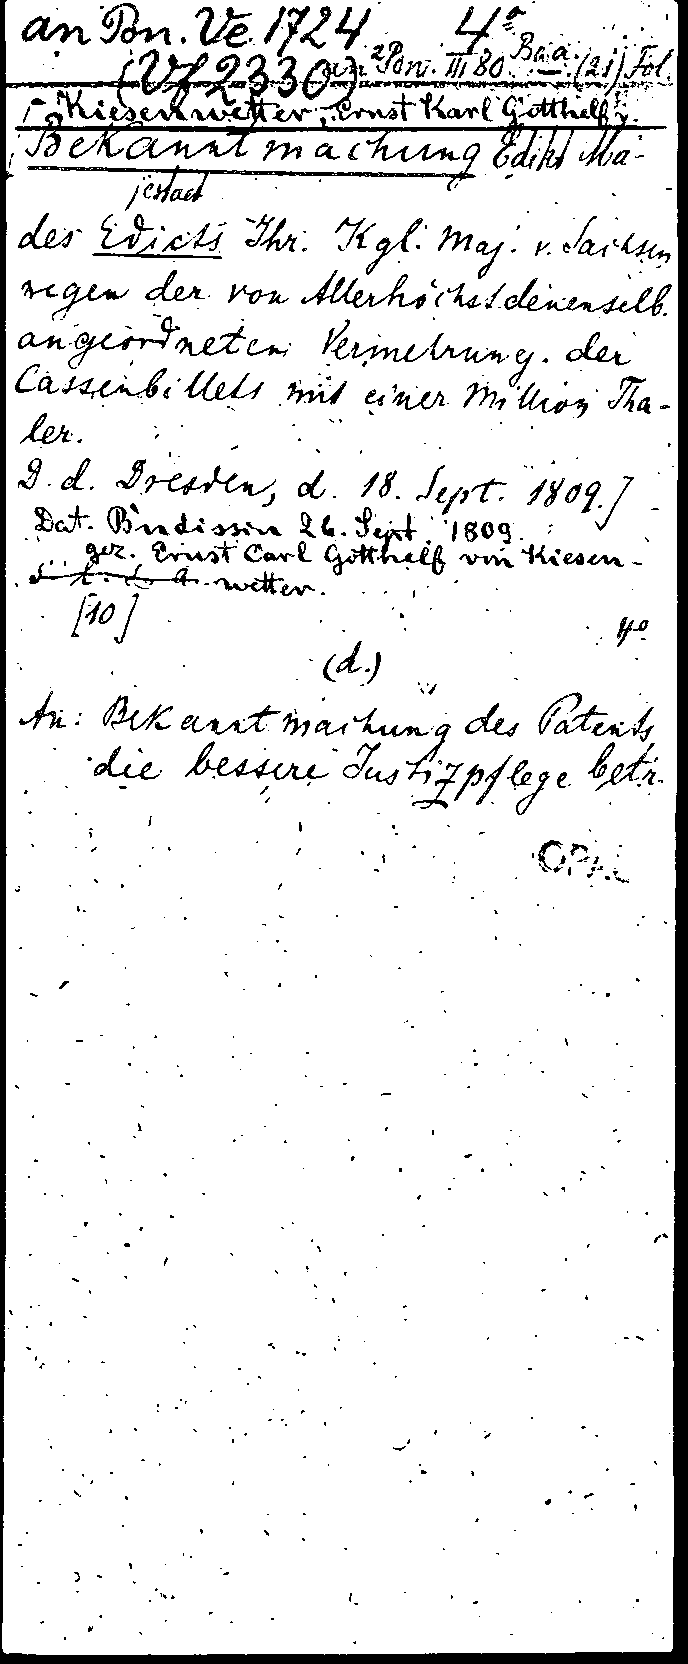 an Pon. Ve 1724 4°
(Vf 2330) an 2 Pon. III 80 Ba.a. (21) Fol.
Kiesenwetter, Ernst Karl Gotthelf v.
Bekanntmachung Edikt Ma-
jestaet
des Edicts Ihr. Kgl. Maj. v. Sachsen
wegen der von Allerhöchstdenenselb.
angeordneten Vermehrung. der
Cassenbillets mit einer Million Tha-
ler.
D. d. Dresden, d. 18. Sept. 1809.]
Dat. Budissin 26. Sept. 1809.
gez. Ernst Carl Gotthelf von Kiesen-
s. l. e. a. wetter.
[10]
4°
(d.)
An: Bekanntmachung des Patents
die bessere Justizpflege betr.